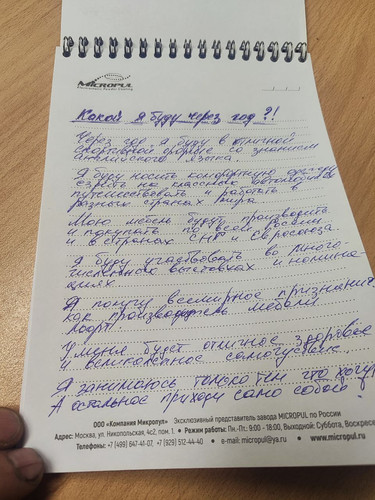 MICROPUL
Какой я буду через год?!
Через год я буду в отличной
спортивной форме со знанием
английского языка.
Я буду носить комфортную одежду
ездить на классных автомобилях
путешествовать и работать в
разных странах мира.
Мою мебель будут производить
и покупать по всей России
и в странах СНГ и Евросоюза.
Я буду участвовать во много-
численных выставках и номина-
циях.
Я получу всемирное признание,
как производитель мебели
Лофт!
У меня будет отличное здоровье
и великолепное самочувствие.
Я занимаюсь только тем что хочу,
А остальное приходи само собой.
ООО «Компания Микропул» Эксклюзивный представитель завода MICROPUL по России
Адрес: Москва, ул. Никопольская, 4с2, пом. 1. • Режим работы: Пн.-Пт.: 9:00 - 18:00, Выходной: Суббота, Воскресенье
Телефоны: +7 (499) 647-41-07, +7 (929) 512-44-40 • e-mail: micropul@ya.ru • www.micropul.ru